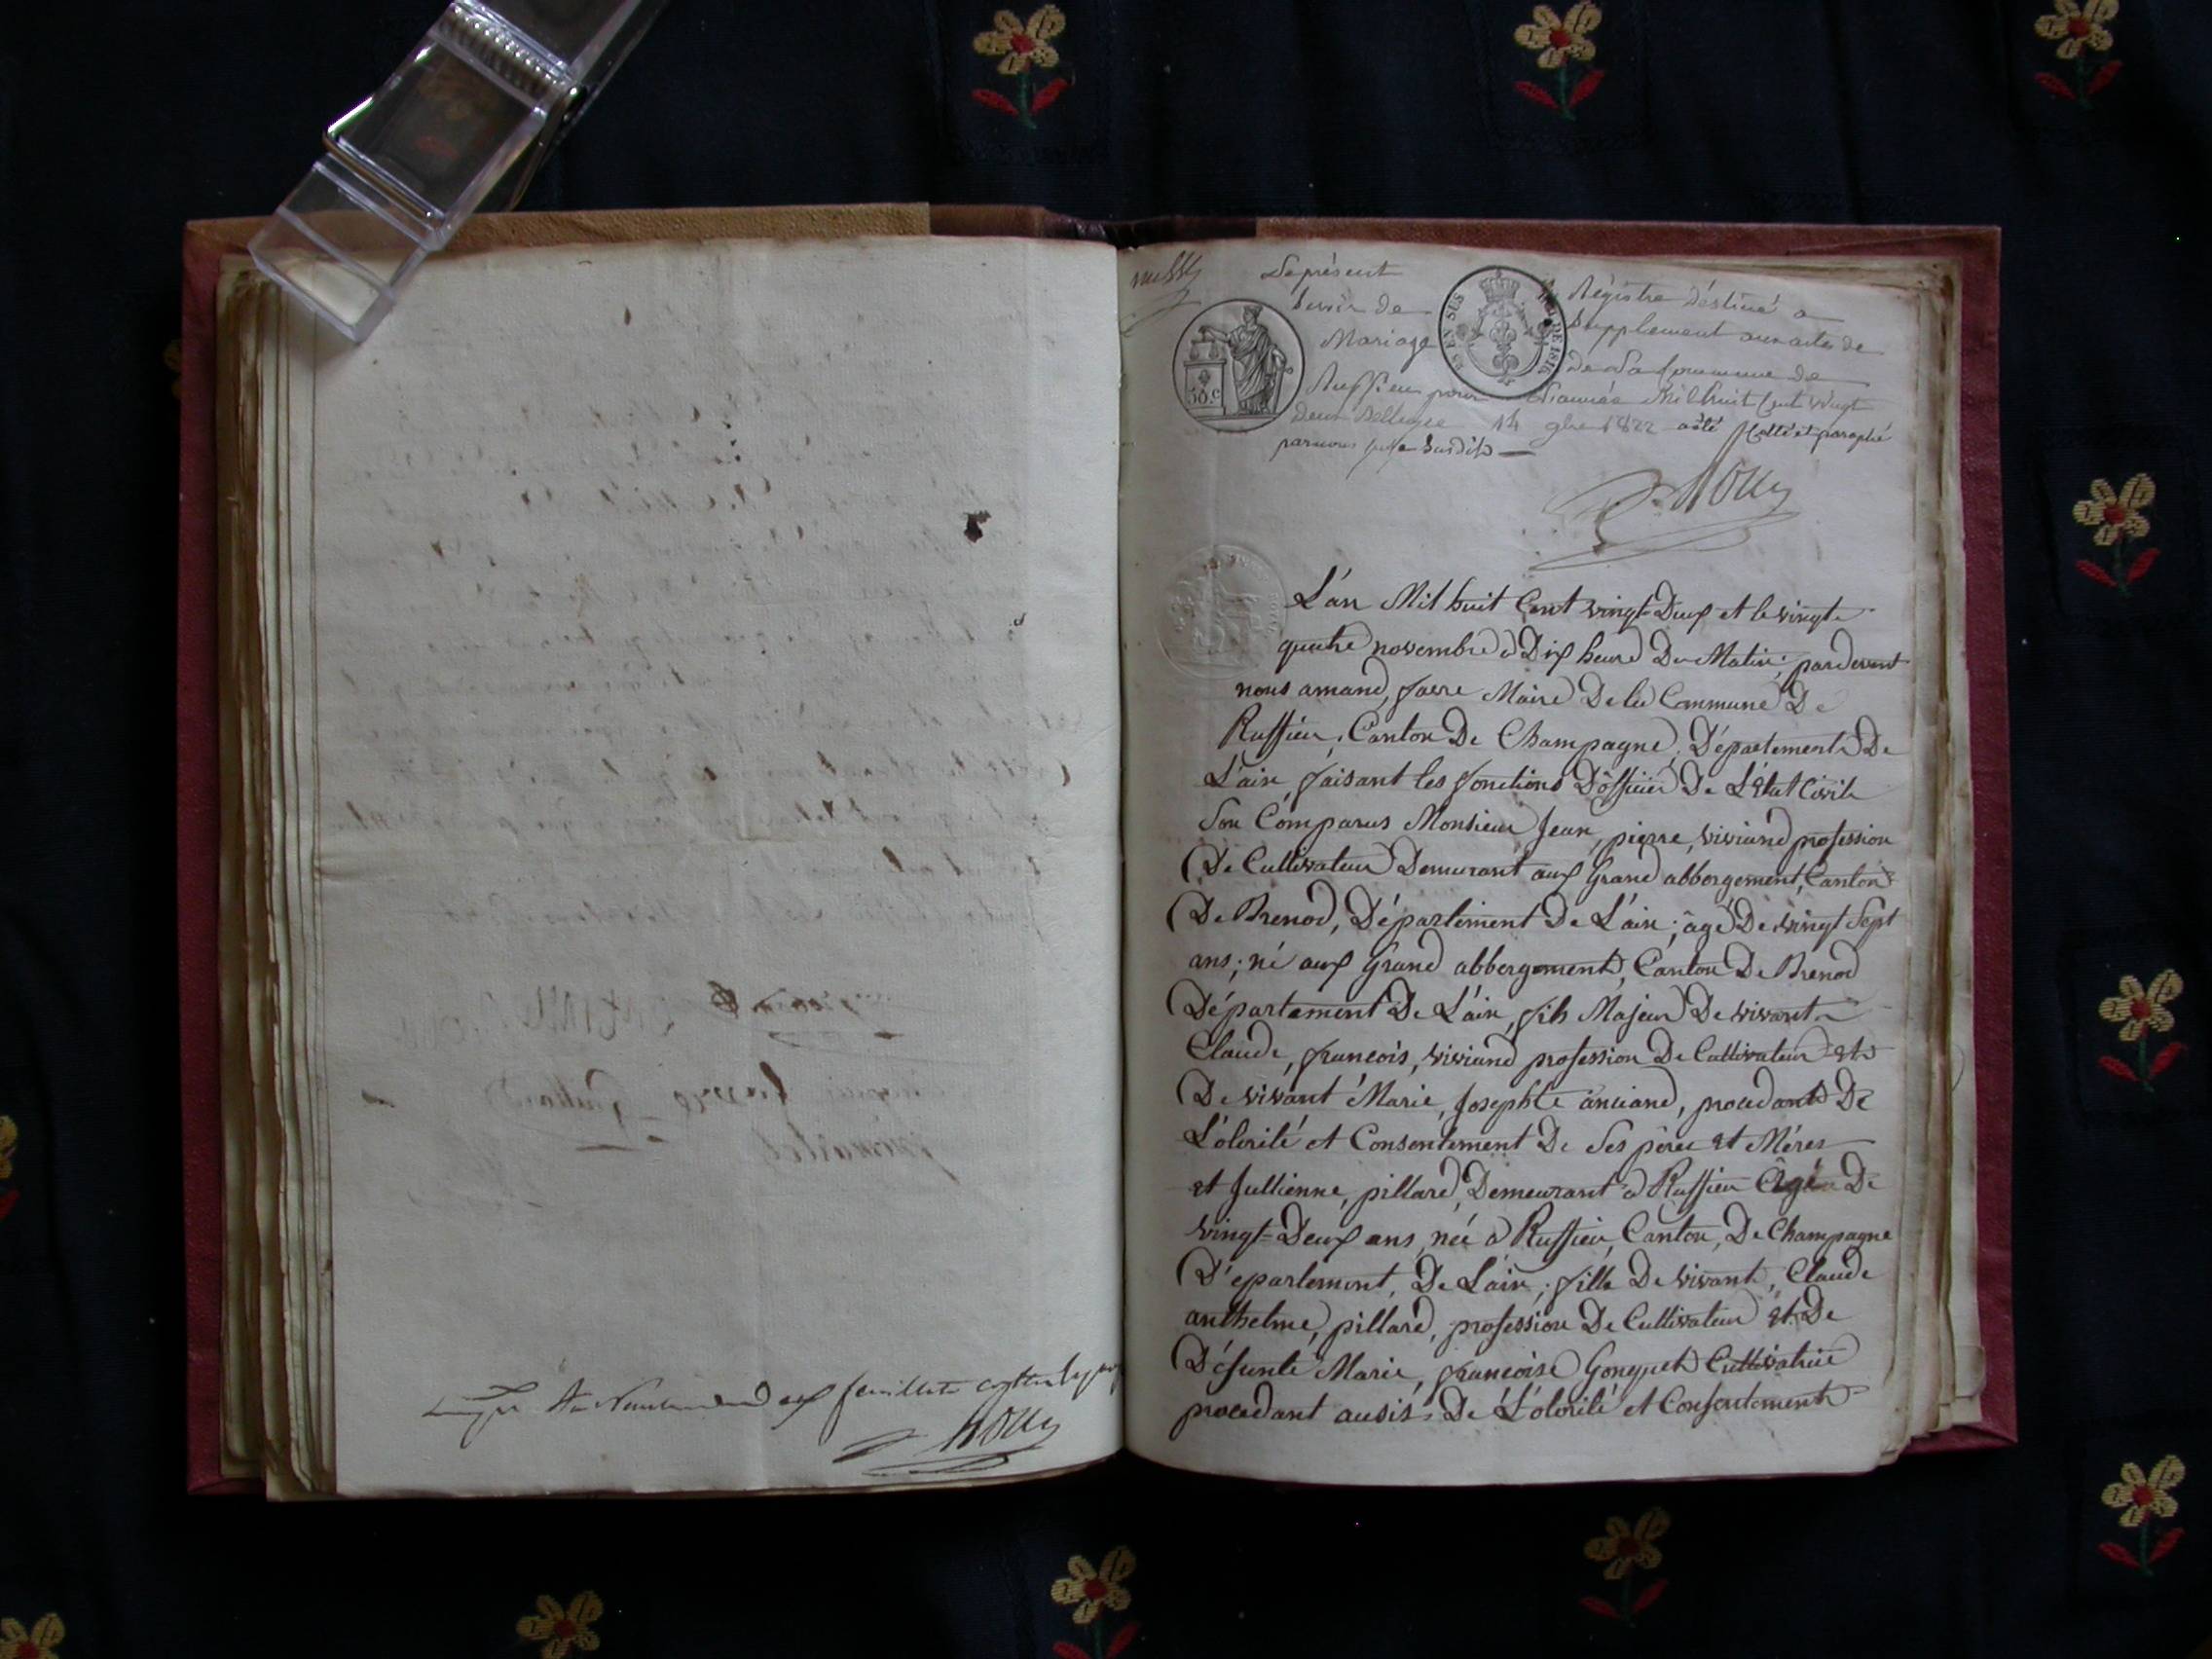 feuillets
Le présent Régistre destiné a
servir de Supplement aux actes de
Mariage de La Commune de
Ruffieu pour L'année Mil huit Cent vingt
Deux Belley le 14 9bre 1822 a été Cotté et paraphé
par nous juge susdit
50.c
DE 1816
L'an Mil huit Cent vingt=Deux et le vingt
quatre novembre à Dix heure Du Matin; pardevant
nous amand, favre Maire De la Commune De
Ruffieu, Canton De Champagne, Département De
L'ain, faisant les fonctions D'officier De L'Etat Civil
Son Comparus Monsieur Jean, pierre, viviand profession
De Cultivateur Demurant aux Grand abbergement, Canton
De Brenod, Département De L'ain; âgé De vingt Sept
ans; né aux Grand abbergement, Canton De Brenod
Département De L'ain, fils Majeur De vivant
Claude, francois, viviand profession De Cultivateur et
De vivant Marie, Josephte anciand, procedant De
L'otorité et Consentement De Ses pères et Méres
et Jullienne, pillard, Demeurant à Ruffieu Agée De
vingt=Deux ans, née à Ruffieu, Canton, De Champagne
D'epartement, De L'ain; fille De vivant, Claude
anthelme, pillard, profession De Cultivateur et De
Défunte Marie, francoise Gonguet Cultivatrice
procedant ausis De L'otorité et Consentement